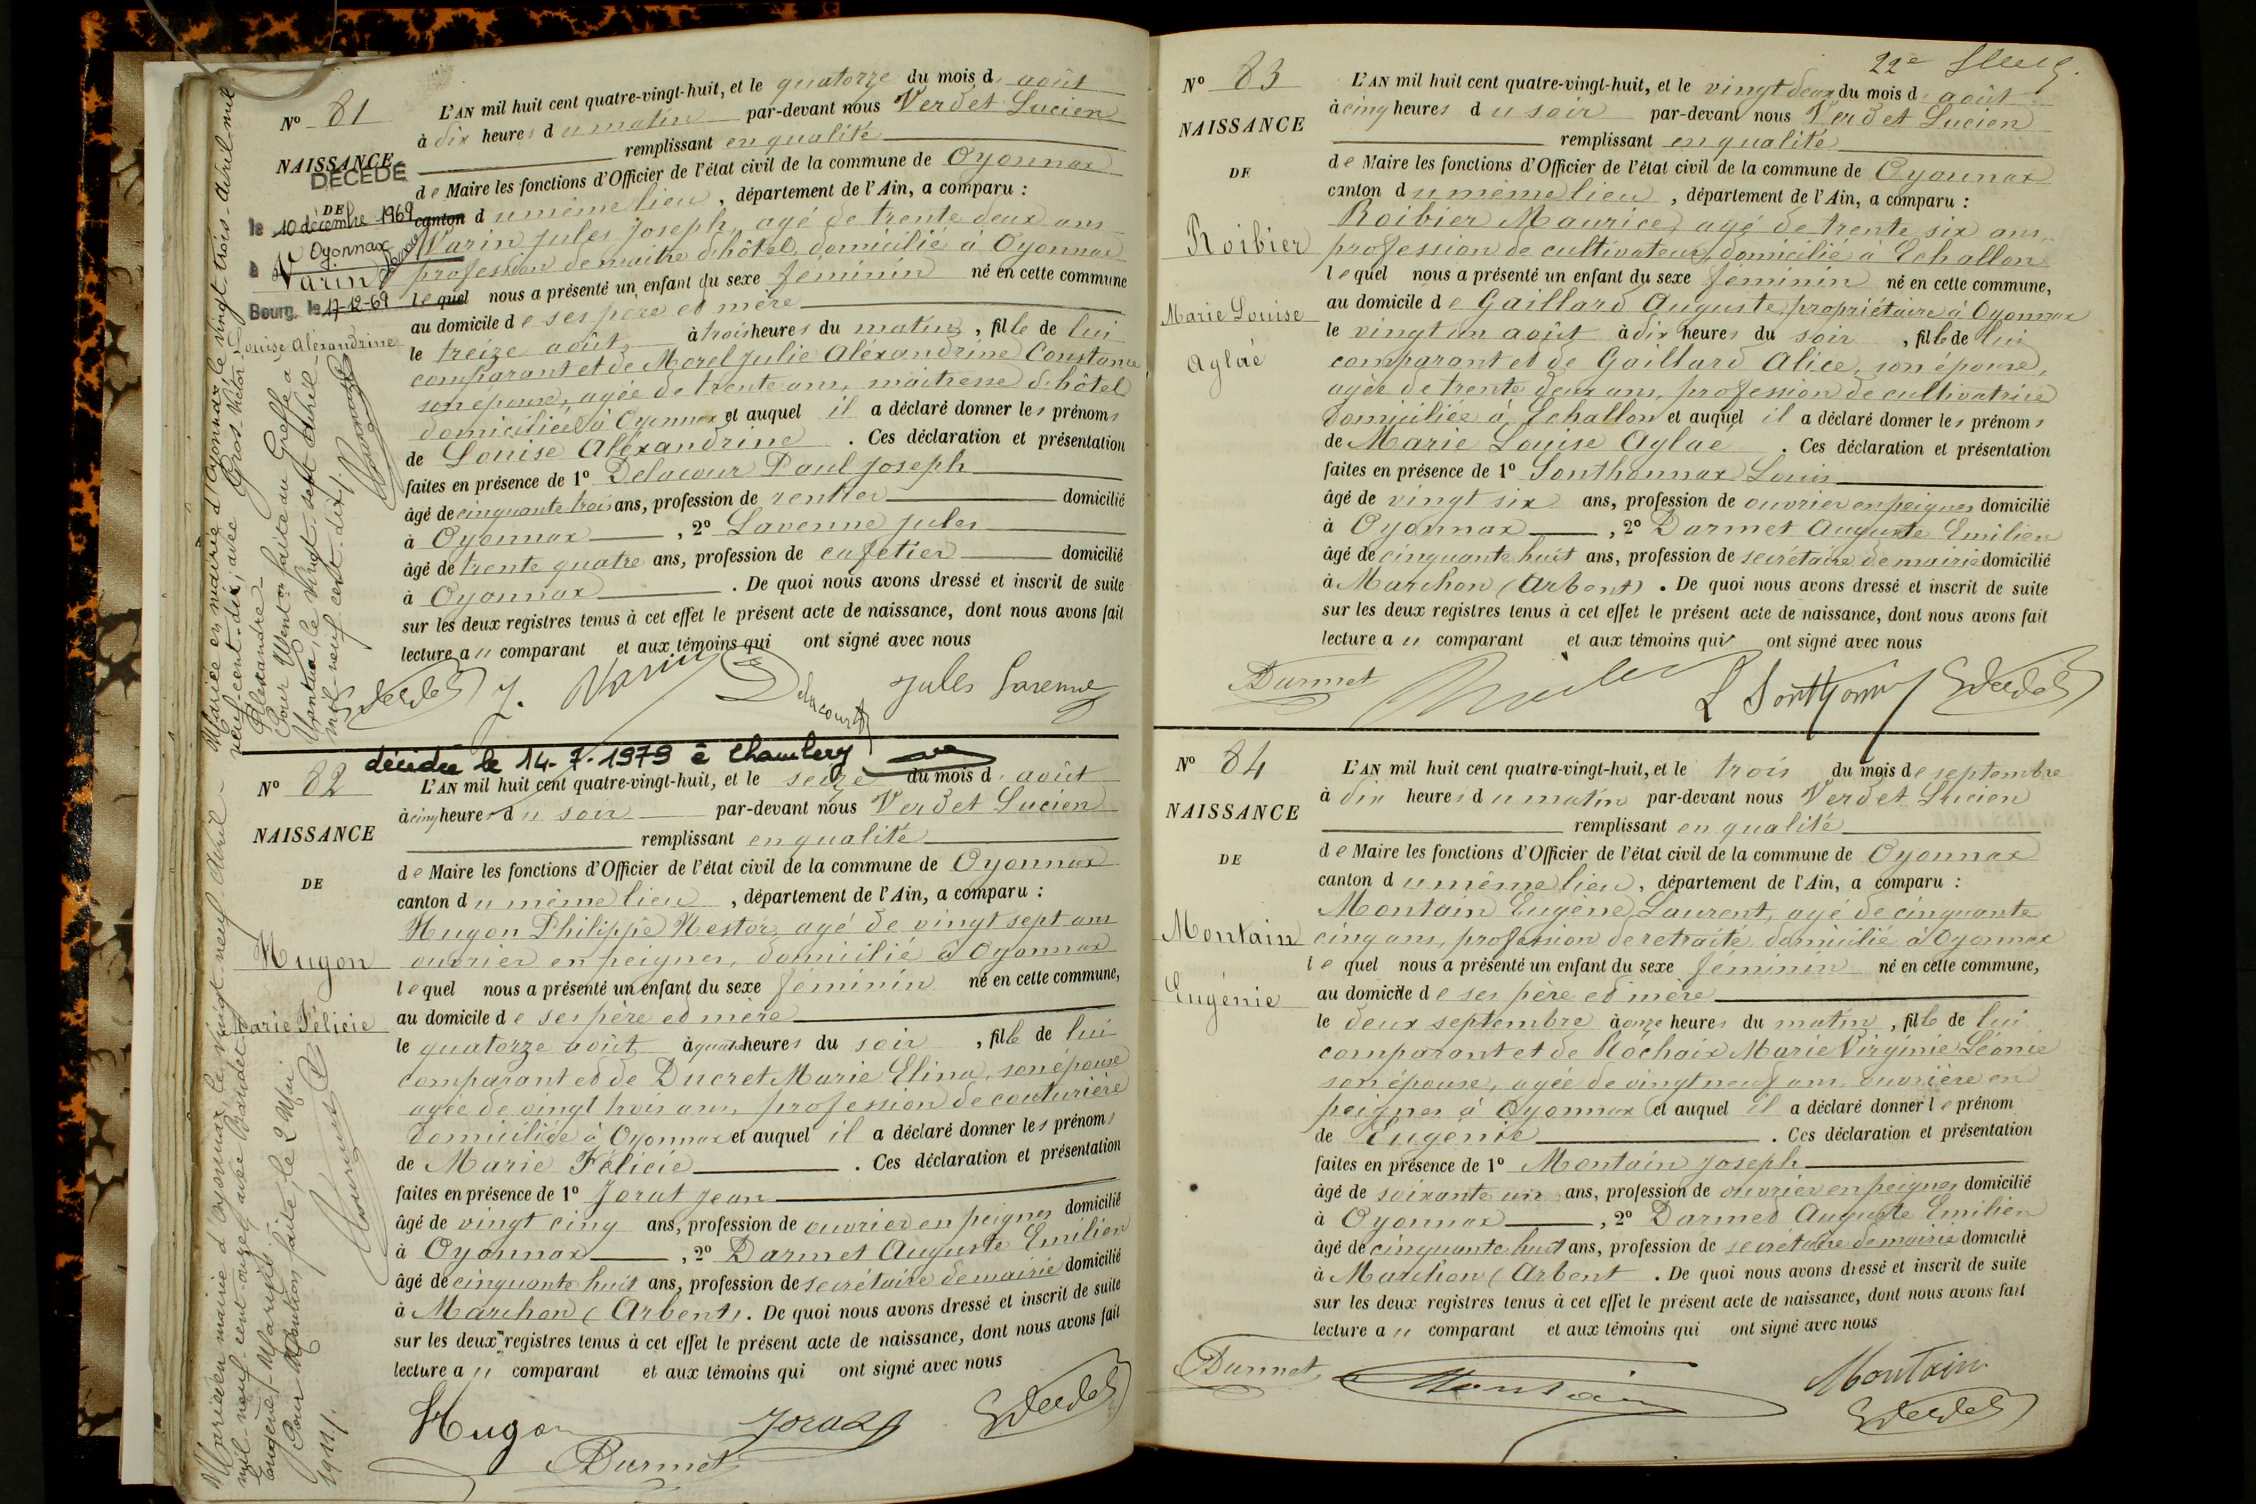 Nº 81
NAISSANCE
DÉCÉDÉ
DE
le 10 décembre 1969
à Oyonnax
Varin
Bourg, le 17-12-69
Louise Aléxandrine
L'AN mil huit cent quatre-vingt-huit, et le quatorze du mois d' août
à dix heures du matin par-devant nous Verdet Lucien
remplissant en qualité
de Maire les fonctions d'Officier de l'état civil de la commune de Oyonnax
canton du même lieu, département de l'Ain, a comparu :
Varin Jules Joseph, agé de trente deux ans
profession de maître d'hôtel, domicilié à Oyonnax
lequel nous a présenté un enfant du sexe féminin né en cette commune
au domicile de ses père et mère
le treize août à trois heures du matin, fille de lui
comparant et de Morel Julie Aléxandrine Constance
son épouse, agée de trente ans, maitresse d'hôtel
domiciliée à Oyonnax et auquel il a déclaré donner les prénoms
de Louise Aléxandrine. Ces déclaration et présentation
faites en présence de 1º Delacour Paul Joseph
âgé de cinquante trois ans, profession de rentier domicilié
à Oyonnax, 2º Lavenne Jules
âgé de trente quatre ans, profession de cafetier domicilié
à Oyonnax. De quoi nous avons dressé et inscrit de suite
sur les deux registres tenus à cet effet le présent acte de naissance, dont nous avons fait
lecture au comparant et aux témoins qui ont signé avec nous
Verdet J. Varin Delacour Jules Lavenne
Mariée en mairie d'Oyonnax le vingt trois avril mil
neuf cent dix, avec Gros Victor
Alexandre
Pour Mention faite au Greffe à
Nantua, le vingt sept Avril
mil neuf cent dix /.
décédée le 14-7-1979 à Chambéry
Nº 82
NAISSANCE
DE
Hugon
Marie Félicie
L'AN mil huit cent quatre-vingt-huit, et le seize du mois d' août
à cinq heures du soir par-devant nous Verdet Lucien
remplissant en qualité
de Maire les fonctions d'Officier de l'état civil de la commune de Oyonnax
canton du même lieu, département de l'Ain, a comparu :
Hugon Philippe Nestor, agé de vingt sept ans
ouvrier en peignes, domicilié à Oyonnax
lequel nous a présenté un enfant du sexe féminin né en cette commune,
au domicile de ses père et mère
le quatorze août à quatre heures du soir, fille de lui
comparant et de Ducret Marie Elina, son épouse
agée de vingt trois ans, profession de couturière
domiciliée à Oyonnax et auquel il a déclaré donner les prénoms
de Marie Félicie. Ces déclaration et présentation
faites en présence de 1º Jorat Jean
âgé de vingt cinq ans, profession de ouvrier en peignes domicilié
à Oyonnax, 2º Darmet Auguste Emilien
âgé de cinquante huit ans, profession de secrétaire de mairie domicilié
à Marchon (Arbent). De quoi nous avons dressé et inscrit de suite
sur les deux registres tenus à cet effet le présent acte de naissance, dont nous avons fait
lecture au comparant et aux témoins qui ont signé avec nous
Hugon Jorat Verdet
Darmet
Mariée en mairie d'Oyonnax le vingt neuf Avril
mil neuf cent onze, avec
Eugène, Marius
Pour Mention faite, le 2 Mai
1911 /.
22e
Nº 83
NAISSANCE
DE
Roibier
Marie Louise
Aglaé
L'AN mil huit cent quatre-vingt-huit, et le vingt deux du mois d' août
à cinq heures du soir par-devant nous Verdet Lucien
remplissant en qualité
de Maire les fonctions d'Officier de l'état civil de la commune de Oyonnax
canton du même lieu, département de l'Ain, a comparu :
Roibier Maurice, agé de trente six ans,
profession de cultivateur, domicilié à Echallon
lequel nous a présenté un enfant du sexe féminin né en cette commune,
au domicile de Gaillard Auguste, propriétaire à Oyonnax
le vingt un août à dix heures du soir, fille de lui
comparant et de Gaillard Alice, son épouse,
agée de trente deux ans, profession de cultivatrice
domiciliée à Echallon et auquel il a déclaré donner les prénoms
de Marie Louise Aglaé. Ces déclaration et présentation
faites en présence de 1º Sonthonnax Louis
âgé de vingt six ans, profession de ouvrier en peignes domicilié
à Oyonnax, 2º Darmet Auguste Emilien
âgé de cinquante huit ans, profession de secrétaire de mairie domicilié
à Marchon (Arbent). De quoi nous avons dressé et inscrit de suite
sur les deux registres tenus à cet effet le présent acte de naissance, dont nous avons fait
lecture au comparant et aux témoins qui ont signé avec nous
Darmet L Sonthonnax Verdet
Nº 84
NAISSANCE
DE
Montain
Eugénie
L'AN mil huit cent quatre-vingt-huit, et le trois du mois de septembre
à dix heures du matin par-devant nous Verdet Lucien
remplissant en qualité
de Maire les fonctions d'Officier de l'état civil de la commune de Oyonnax
canton du même lieu, département de l'Ain, a comparu :
Montain Eugène Laurent, agé de cinquante
cinq ans, profession de retraité, domicilié à Oyonnax
lequel nous a présenté un enfant du sexe féminin né en cette commune,
au domicile de ses père et mère
le deux septembre à onze heures du matin, fille de lui
comparant et de Rochaix Marie Virginie Léonie
son épouse, agée de vingt neuf ans, ouvrière en
peignes à Oyonnax et auquel il a déclaré donner le prénom
de Eugénie. Ces déclaration et présentation
faites en présence de 1º Montain Joseph
âgé de soixante un ans, profession de ouvrier en peignes domicilié
à Oyonnax, 2º Darmet Auguste Emilien
âgé de cinquante huit ans, profession de secrétaire de mairie domicilié
à Marchon (Arbent. De quoi nous avons dressé et inscrit de suite
sur les deux registres tenus à cet effet le présent acte de naissance, dont nous avons fait
lecture au comparant et aux témoins qui ont signé avec nous
Darmet Montain Montain
Verdet